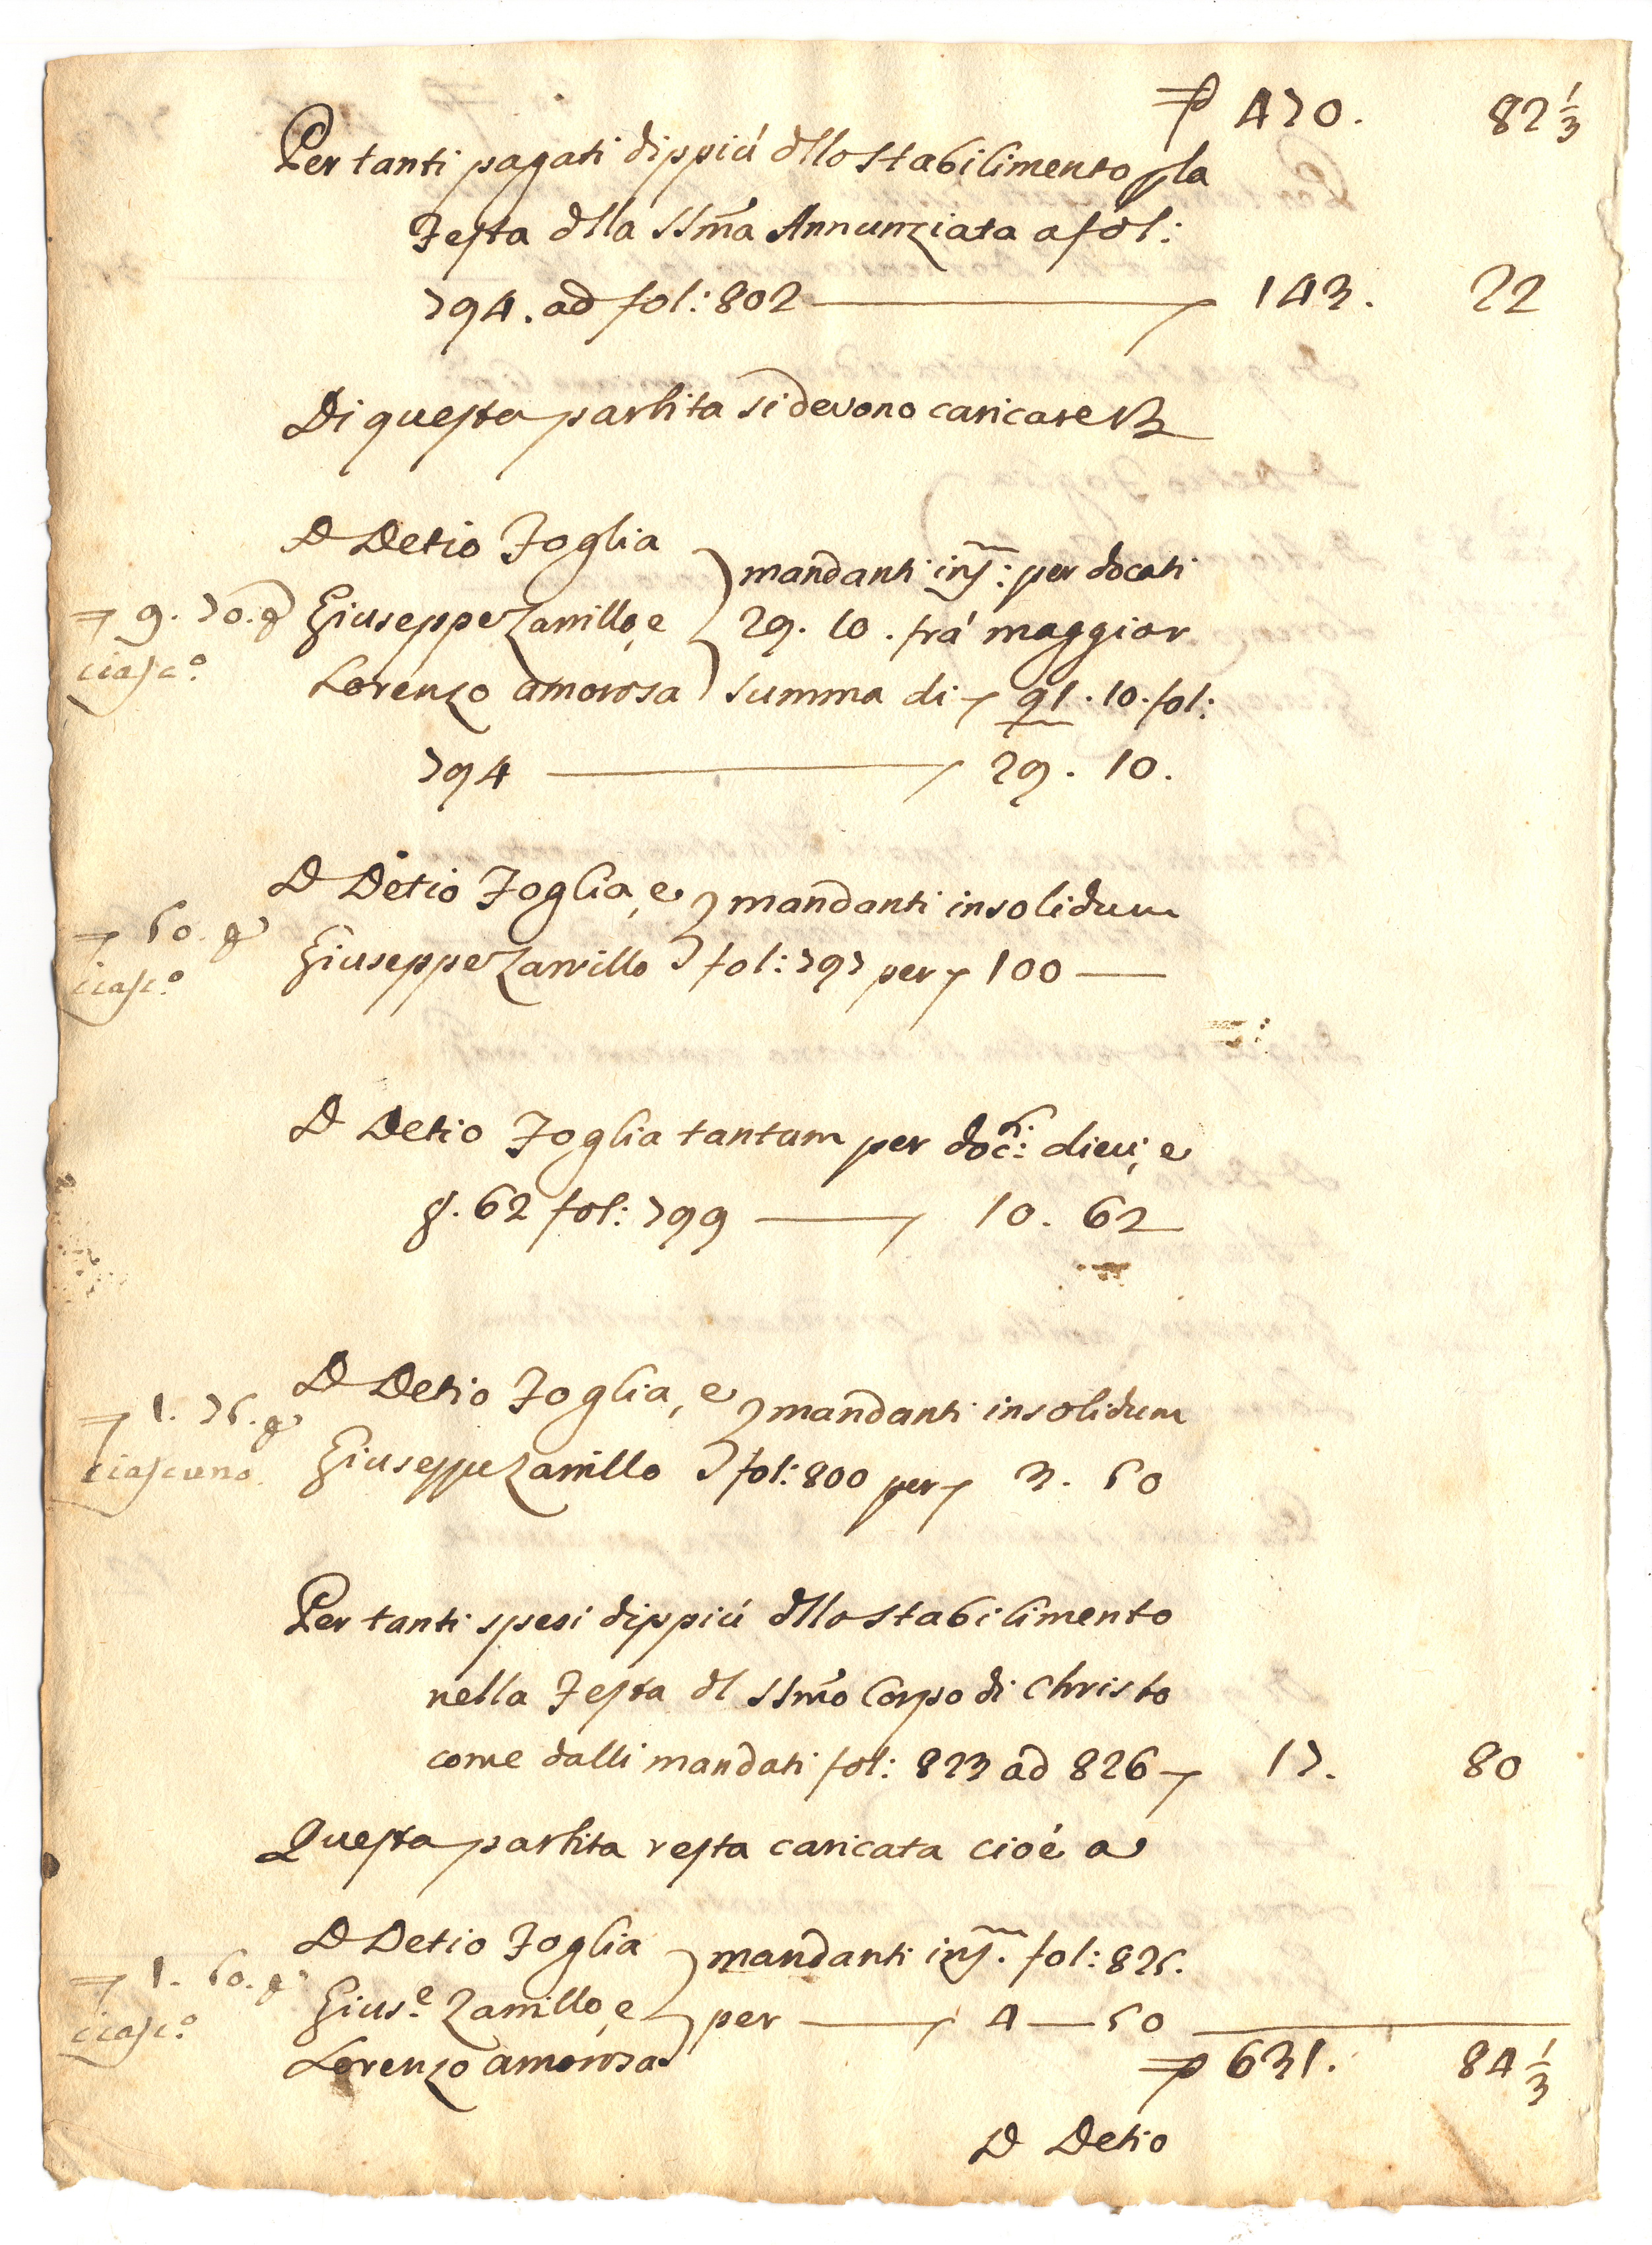 470. 82 1/3
Per tanti pagati dippiú dllo stabilimento p la
Festa dlla SSma Annunziata a fol:
794. ad fol: 802 — 143. 22
Di questa partita si devono caricare
D Detio Foglia
mandanti ins: per docati
9. 70. p Giuseppe Zarrillo, e
29. 10. frá maggior
ciasc.o
Lorenzo amorosa summa di 91. 10. fol:
794 — 29. 10.
D Detio Foglia, e mandanti insolidum
50. p
Giuseppe Zarrillo fol: 797 per 100 —
ciasc.o
D Detio Foglia tantum per doc:ti dieci, e
g. 62 fol: 799 — 10. 62
D Detio Foglia, e mandanti insolidum
1. 75. p
ciascuno Giuseppe Zarrillo fol: 800 per 3. 50
Per tanti spesi dippiú dllo stabilimento
nella Festa dl SSmo Corpo di Christo
come dalli mandati fol: 823 ad 826 17. 80
Questa partita resta caricata cioé a
D Detio Foglia mandanti ins. fol: 825.
1. 50. p
Gius.e Zarrillo, e per — 4 — 50
ciasc.o
Lorenzo amorosa
631. 84 1/3
D Detio